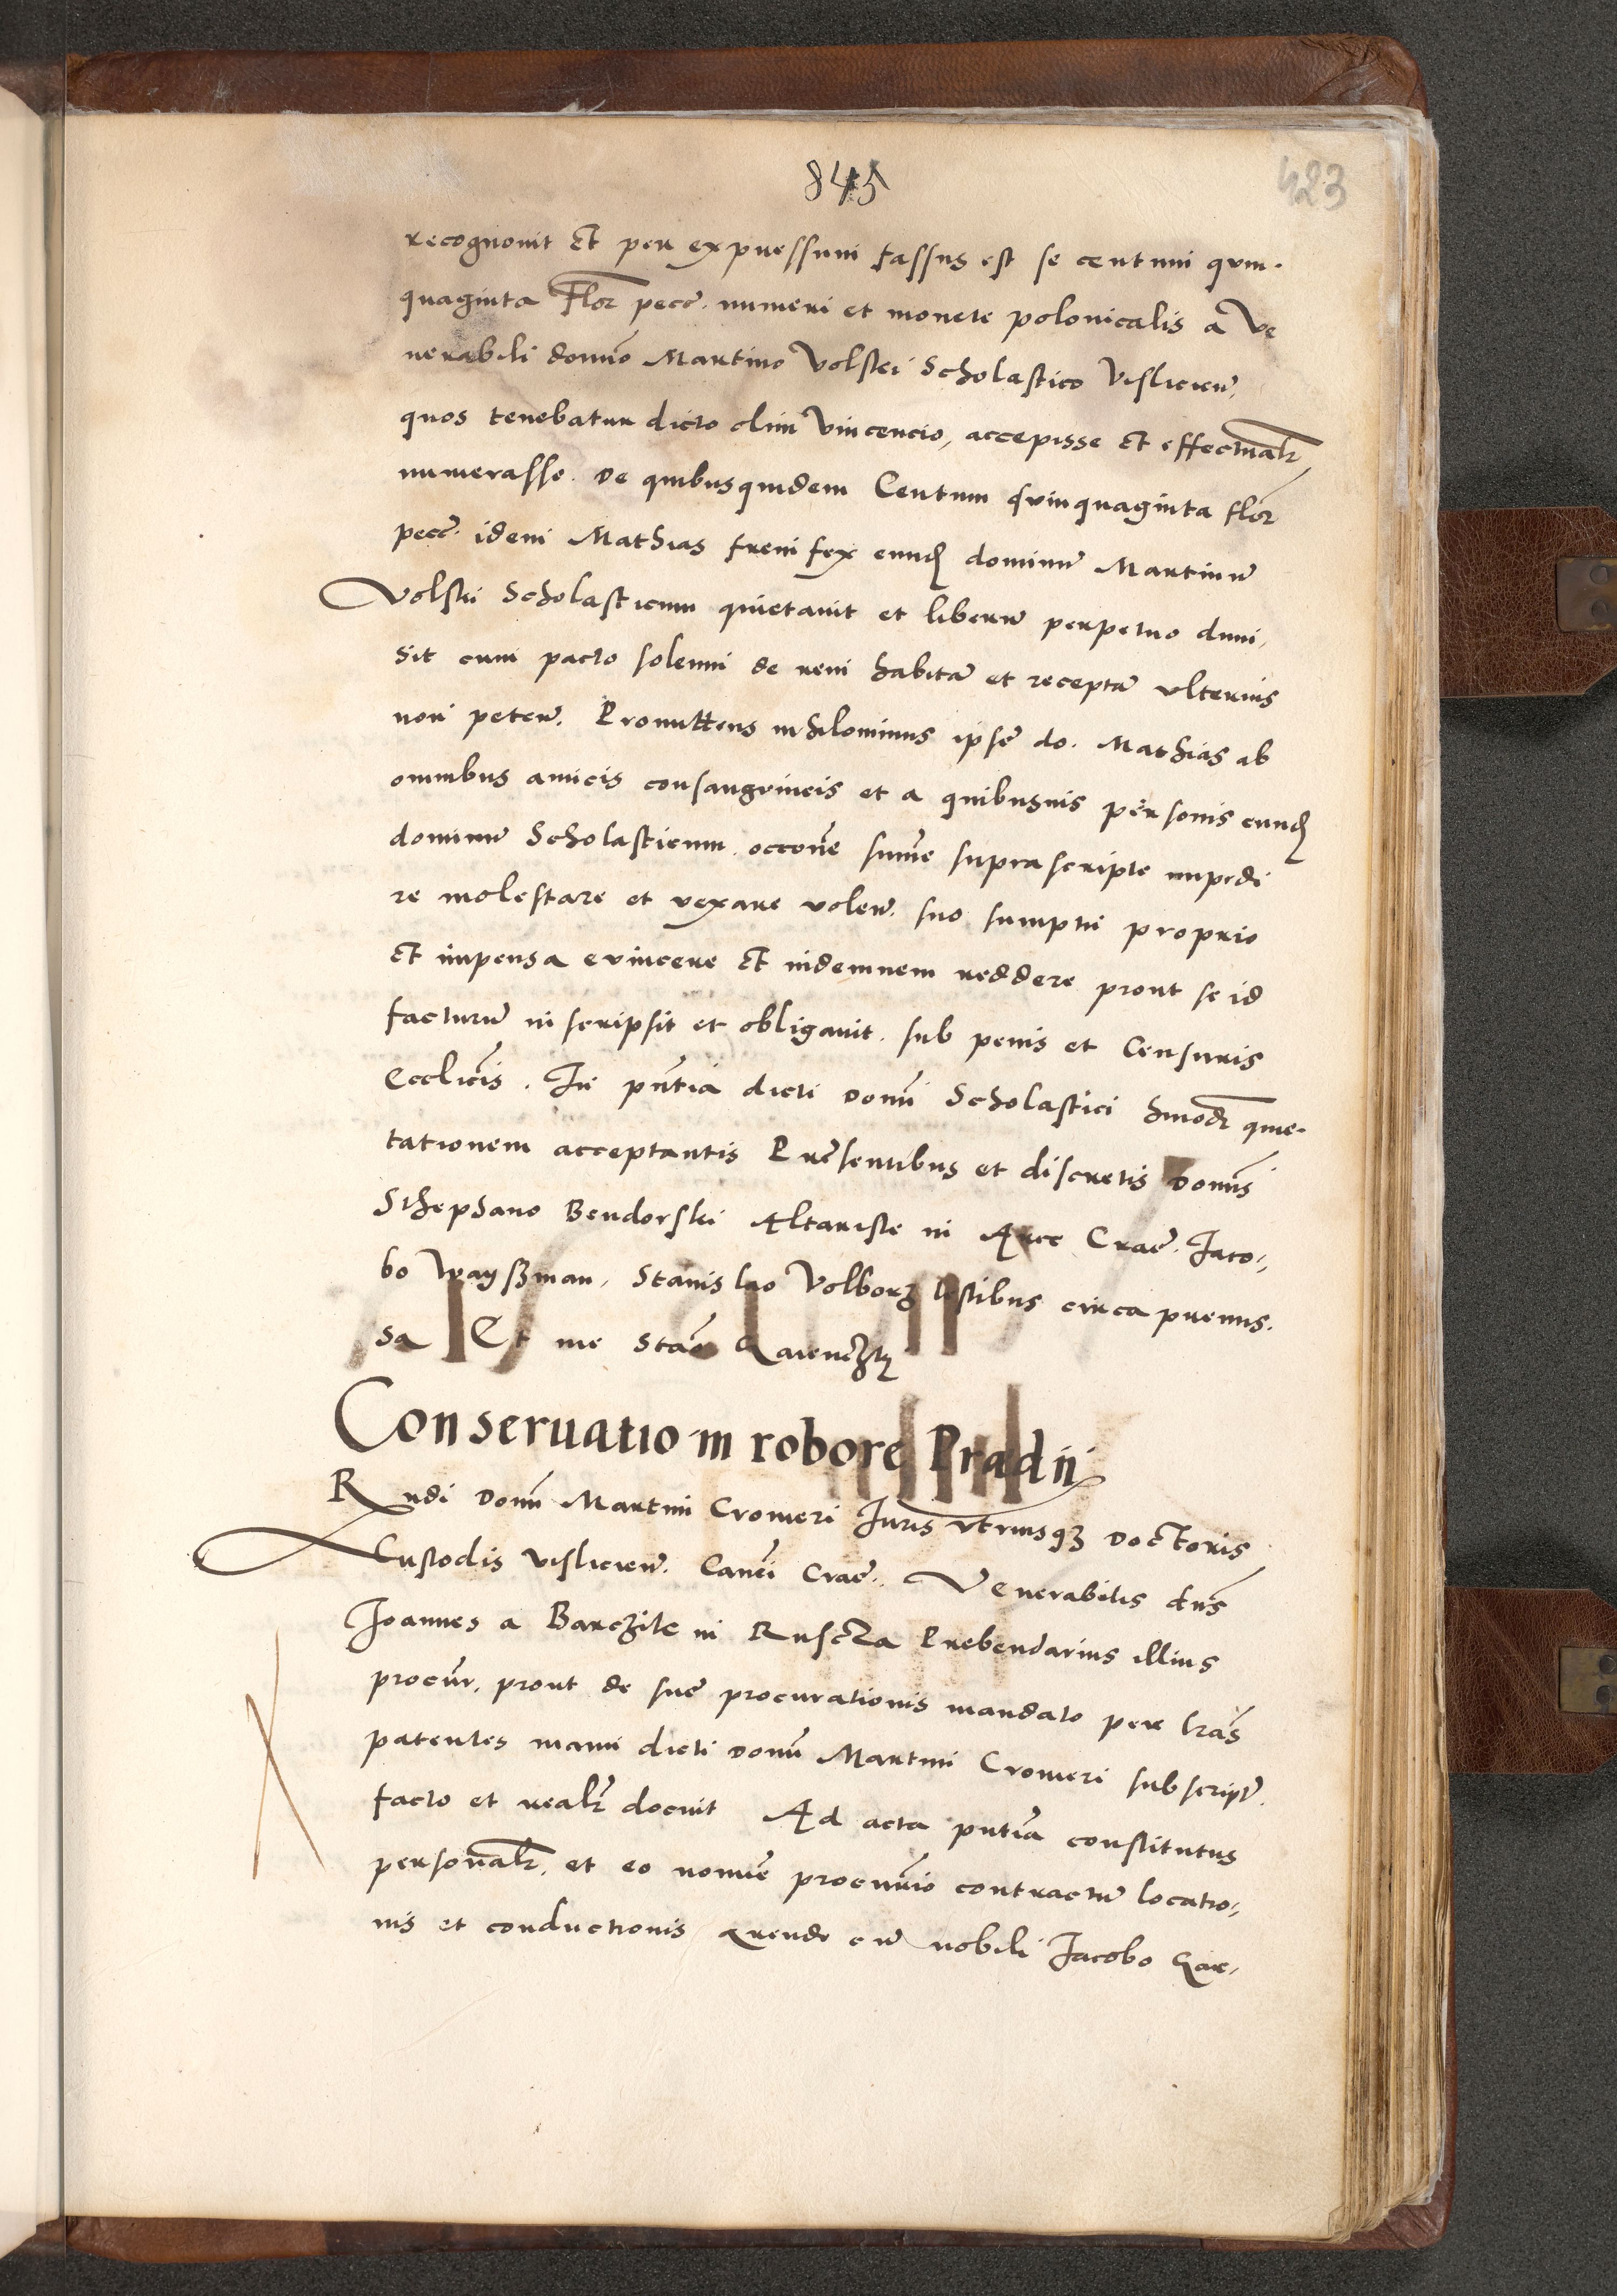 845
423
recognovit Et per expressum fassus est se centum quin-
quaginta Flor pecce. numeri et monete polonicalis a Ve
nerabili domino Martino Volski Scholastico Visliciens,
quos tenebatur dicto olim Vincencio, accepisse Et effectualr
numerasse. De quibusquidem Centum quinquaginta flor
pecce. idem Mathias frenifex eundem dominum Martinum
Volski Scholasticum quietavit et liberum perpetuo dimi,
sit cum pacto solenni de rem habitam et receptam ulterius
non peten. Promittens nihilominus ipse do. Mathias ab
omnibus amicis consanguineis et a quibusvis personis eundem
dominum Scholasticum. occone summe suprascripte impedi
re molestare et vexare volen. suo sumptu proprio
Et impensa evincere Et indemnem reddere prout se id
facturum inscripsit et obligavit. sub penis et Censuris
Ecclicis. In pntia dicti domi Scholastici hmodi quie-
tationem acceptantis Presentibus et discretis domis
Sthephano Bendorski Altariste in Arce Crac. Jaco-,
bo Wayssman. Stanislao Volborz testibus circa premis.
sa Et me Stan
Conservatio in robore Pradii
Rndi domi Martini Cromeri Juris utriusque Doctoris
Custodis Vislicien. Canci Crac. Venerabilis dns
Joannes a Barczile in Ruscza Prebendarius illius
procur. prout de sue procurationis mandato per lras
patentes manu dicti domi Martini Cromeri subscript.
facto et realr docuit Ad acta pntia constitutus
personalr. et eo nomine procurio contractum locatio-,
nis et conductionis Arende cum nobili Jacobo Gar-,